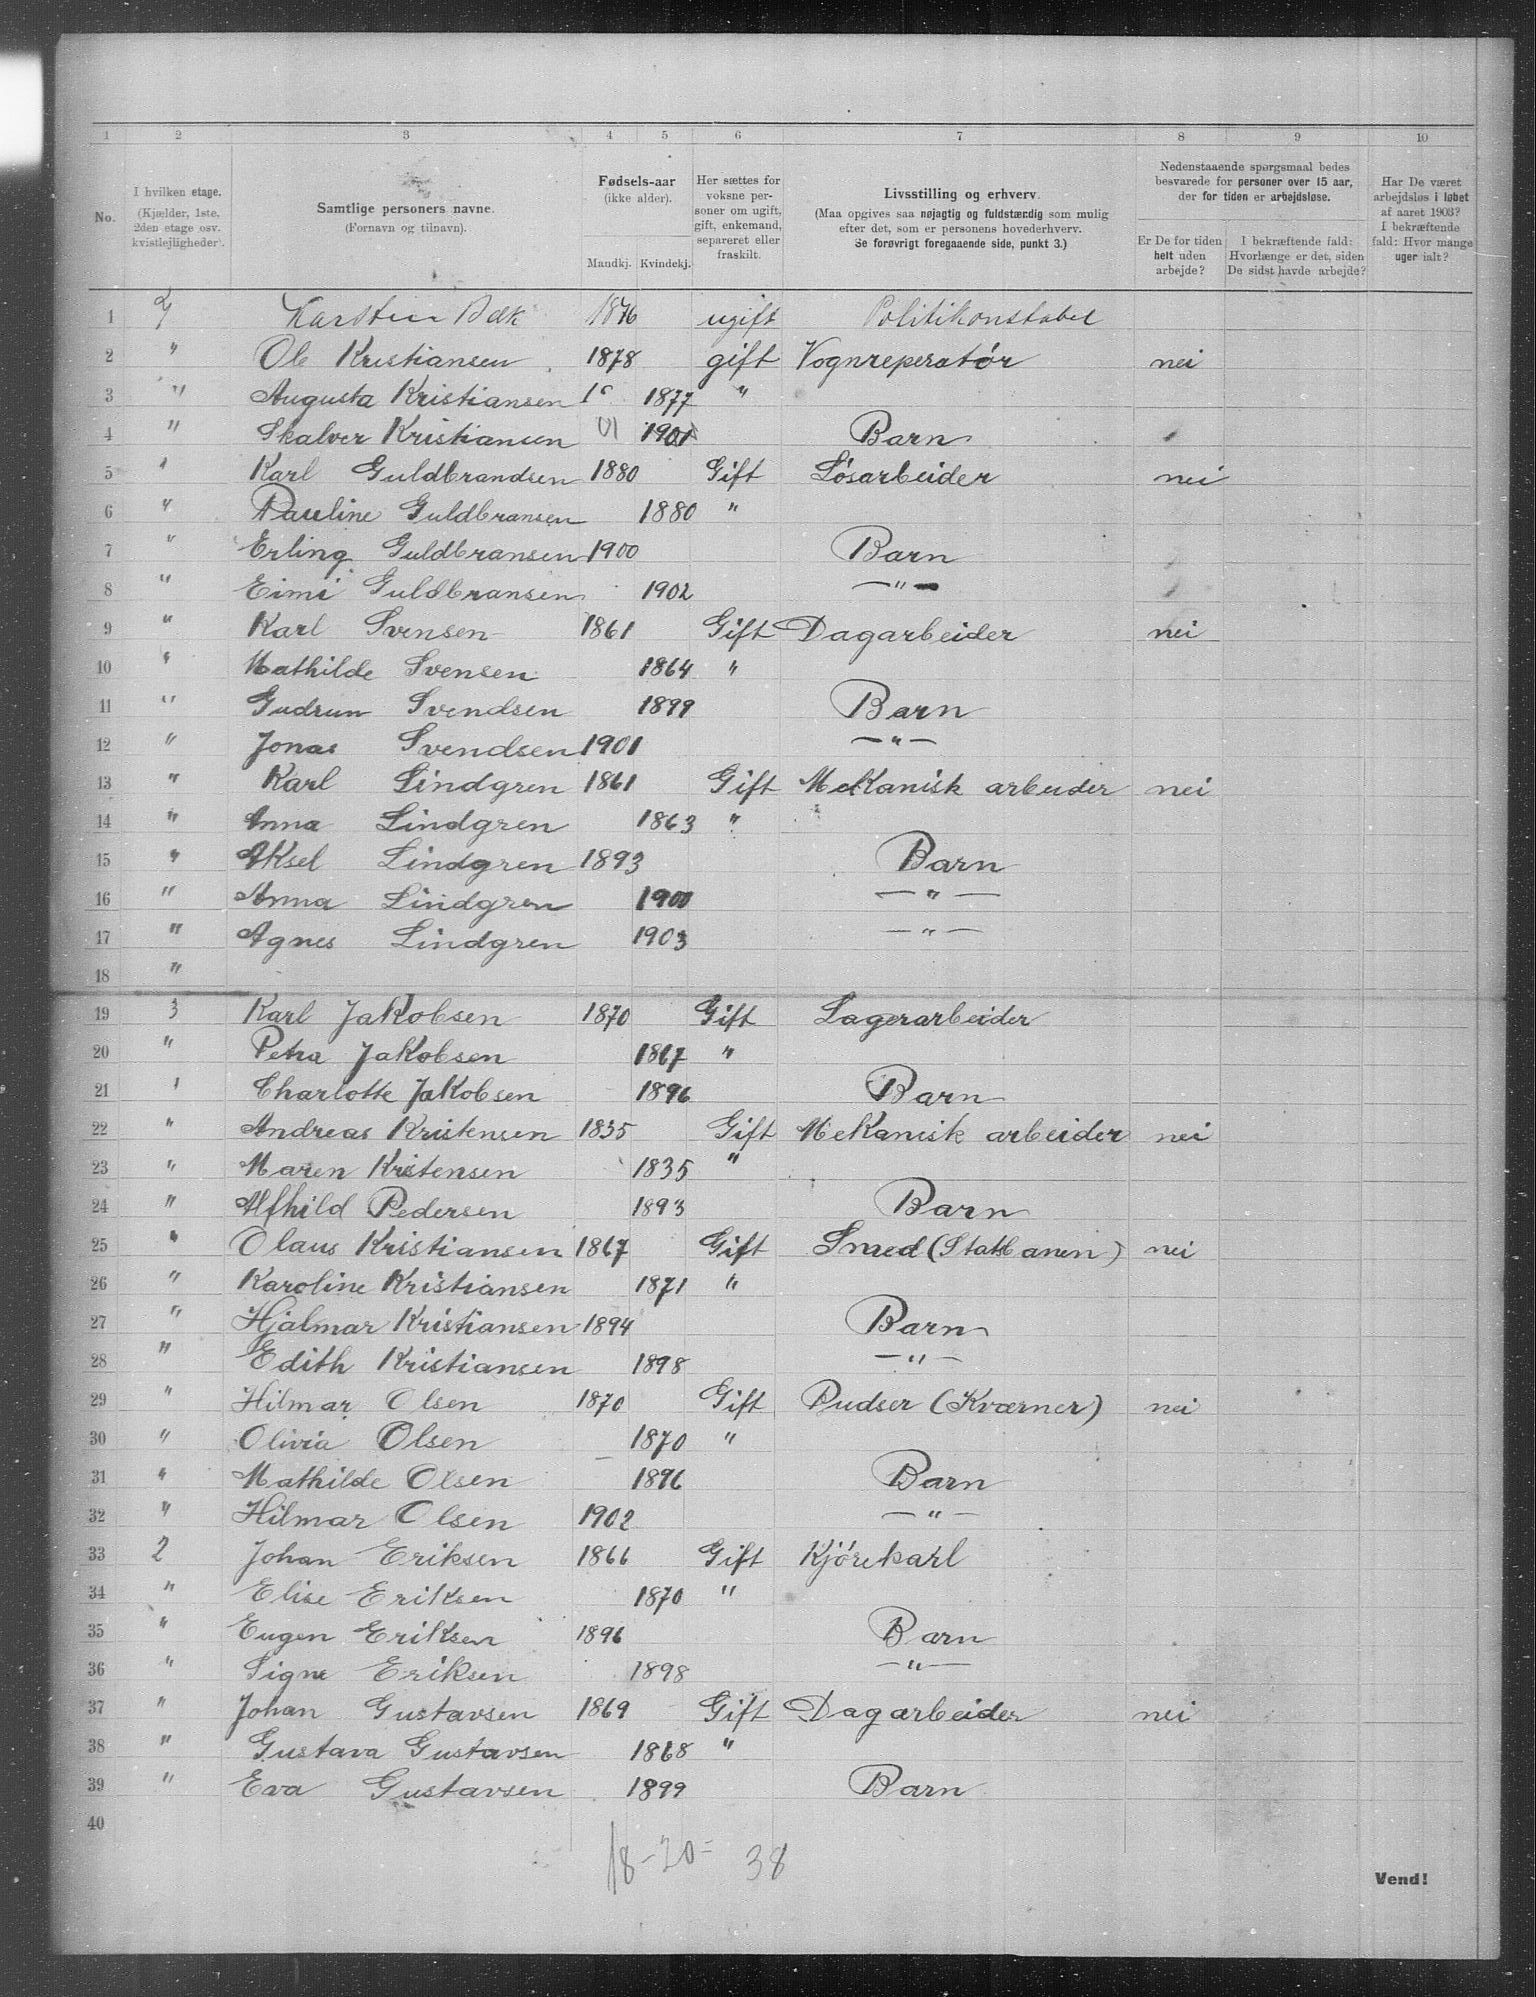 1 2 3 4 5 6 7 8 9 10
No.
I hvilken etage.
(Kjælder, 1ste,
2den etage osv.
kvistlejligheder).
Samtlige personers navne.
(Fornavn og tilnavn).
Fødsels-aar
(ikke alder).
Mandkj. Kvindekj.
Her sættes for
voksne per-
soner om ugift,
gift, enkemand,
separeret eller
fraskilt.
Livsstilling og erhverv.
(Maa opgives saa nøjagtig og fuldstændig som mulig
efter det, som er personens hovederhverv.
Se forøvrigt foregaaende side, punkt 3.)
Nedenstaaende spørgsmaal bedes
besvarede for personer over 15 aar,
der for tiden er arbejdsløse.
Er De for tiden
helt uden
arbejde?
I bekræftende fald:
Hvorlænge er det, siden
De sidst havde arbejde?
Har De været
arbejdsløs i løbet
af aaret 1903?
I bekræftende
fald: Hvor mange
uger ialt?
1 Karsten 1876 ugift Politikonstabel
2 " Ole Kristiansen 1878 gift Vognreperatør nei
3 " Augusta Kristiansen 1877 "
4 " Skalver Kristiansen 01 1901 Barn
5 " Karl Guldbrandsen 1880 Gift Løsarbeider nei
6 " Pauline Guldbransen 1880 "
7 " Erling Guldbransen 1900 Barn
8 " Eimi Guldbransen 1902 — " —
9 " Karl Svensen 1861 Gift Dagarbeider nei
10 " Mathilde Svensen 1864 "
11 " Gudrun Svendsen 1899 Barn
12 " Jonas Svendsen 1901 — " —
13 " Karl Lindgren 1861 Gift Mekanisk arbeider nei
14 " Anna Lindgren 1863 "
15 " Aksel Lindgren 1893 Barn
16 " Anna Lindgren 1900 — " —
17 " Agnes Lindgren 1903 — " —
18 "
19 3 Karl Jakobsen 1870 Gift Lagerarbeider
20 " Petra Jakobsen 1867 "
21 " Charlotte Jakobsen 1896 Barn
22 " Andreas Kristensen 1835 Gift Mekanisk arbeider nei
23 " Maren Kristensen 1835 "
24 " Alfhild Pedersen 1893 Barn
25 " Olaus Kristiansen 1867 Gift Smed (Statsbanen) nei
26 " Karoline Kristiansen 1871 "
27 " Hjalmar Kristiansen 1894 Barn
28 " Edith Kristiansen 1898 — " —
29 " Hilmar Olsen 1870 Gift Pudser (Kværner) nei
30 " Olivia Olsen 1870 "
31 " Mathilde Olsen 1896 Barn
32 " Hilmar Olsen 1902 — " —
33 2 Johan Eriksen 1866 Gift Kjørekarl
34 " Elise Eriksen 1870 "
35 " Eugen Eriksen 1896 Barn
36 " Signe Eriksen 1898 — " —
37 " Johan Gustavsen 1869 Gift Dagarbeider nei
38 " Gustava Gustavsen 1868 "
39 " Eva Gustavsen 1899 Barn
40
18-20- 38
Vend!